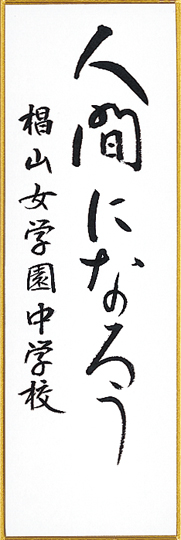 人間になろう
椙山女学園中学校